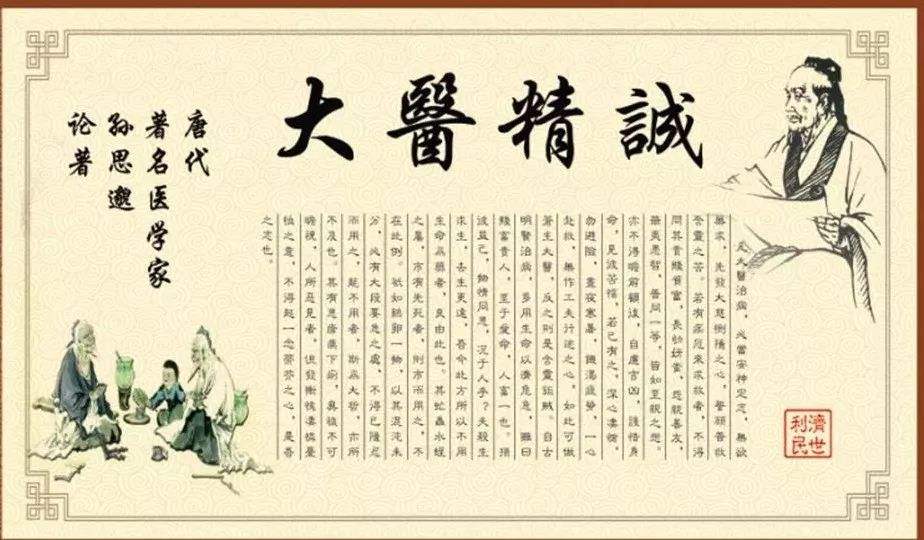 大醫精誠
唐代
著名医学家
孙思邈
论著
凡大醫治病，必當安神定志，無欲
無求，先發大慈惻隱之心，誓願普救
含靈之苦。若有疾厄來求救者，不得
問其貴賤貧富，長幼妍蚩，怨親善友，
華夷愚智，普同一等，皆如至親之想。
亦不得瞻前顧後，自慮吉凶，護惜身
命，見彼苦惱，若己有之，深心淒愴，
勿避險，晝夜寒暑，饑渴疲勞，一心
赴救，無作工夫行跡之心。如此可做
蒼生大醫，反之則是含靈鉅賊。自古
明賢治病，多用生命以濟危急，雖曰
賤畜貴人，至于愛命，人畜一也。損
彼益己，物情同患，況于人乎？夫殺生
求生，去生更遠。吾今此方所以不用
生命為藥者，良由此也。其虻蟲水蛭
之屬，市有先死者，則市而用之，不
在此例。衹如雞卵一物，以其混沌未
分，必有大段要急之處，不得已隱忍
而用之。能不用者，斯為大哲，亦所
不及也。其有患瘡痍下痢，臭穢不可
瞻視，人所惡見者，但發慚愧淒憐憂
恤之意，不得起一念蒂芥之心，是吾
之志也。
濟世
利民